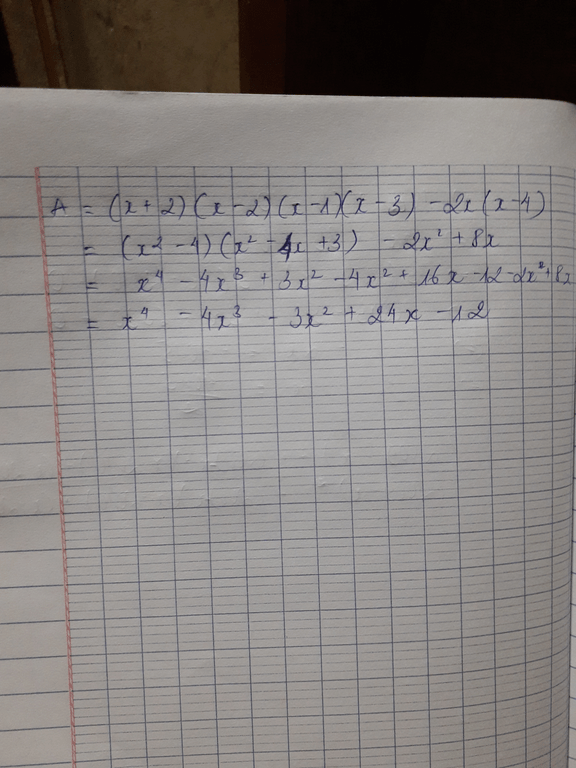 A = (x+2)(x-2)(x-1)(x-3) - 2x(x-4)
= (x² - 4)(x² - 4x + 3) - 2x² + 8x
= x⁴ - 4x³ + 3x² - 4x² + 16x - 12 - 2x² + 8x
= x⁴ - 4x³ - 3x² + 24x - 12